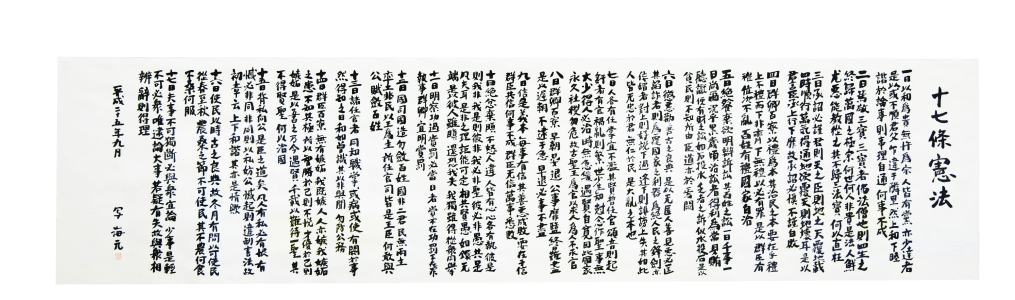 十七條憲法
一曰以和為貴無忤為宗人皆有黨亦少達者
是以或不順君父乍違于隣里然上和下睦
諧於論事則事理自通何事不成
二曰篤敬三寶三寶者佛法僧也則四生之
終歸萬國之極宗何世何人非貴是法人鮮
尤惡能教從之其不歸三寶何以直枉
三曰承詔必謹君則天之臣則地之天覆地載
四時順行萬氣得通地欲覆天則致壞耳是以
君言臣承上行下靡故承詔必慎不謹自敗
四曰群卿百寮以禮為本其治民之本要在乎禮
上不禮而下非齊下無禮以必有罪是以群臣有
禮位次不亂百姓有禮國家自治
五曰絕餮棄欲明辨訴訟其百姓之訟一日千事一
日尚爾況乎累歲頃治訟者得利為常見賄
聽讞便有財之訟如石投水乏者之訴似水投石是以
貧民則不知所由臣道亦於焉闕
六曰懲惡勸善古之良典是以无匿人善見惡必匡
其諂詐者則為覆國家之利器為絕人民之鋒劍亦
佞媚者對上則好說下過逢下則誹謗上失其如此
人皆无忠於君無仁於民是大亂之本也
七曰人各有任掌宜不濫其賢哲任官頌音則起
奸者有官禍亂則繁世少生知剋念作聖事無
大少得人必治時無急緩遇賢自寬因此國家
永久社稷勿危故古聖王為官以求人為人不求官
八曰群卿百寮早朝晏退公事靡盬終日難盡
是以遲朝不逮于急早退必事不盡
九曰信是義本每事有信其善惡成敗要在于信
群臣共信何事不成群臣无信萬事悉敗
十曰絕忿棄瞋不怒人違人皆有心心各有執彼是
則我非我是則彼非我必非聖彼必非愚共是
凡夫耳是非之理詎能可定相共賢愚如鐶无
端是以彼人雖瞋還恐我失我獨雖得從衆同舉
十一曰明察功過賞罰必當日者賞不在功罰不在罪
執事群卿宜明賞罰
十二曰國司國造勿斂百姓國非二君民無兩主
率土兆民以王為主所任官司皆是王臣何敢與
公賦斂百姓
十三曰諸任官者同知職掌或病或使有闕於事
然得知之日和如曾識其以非與聞勿防公務
十四曰群臣百寮無有嫉妬我既嫉人人亦嫉我嫉妬
之患不知其極所以智勝於己則不悅才優於己則
嫉妬是以五百之乃今遇賢千載以難待一聖其
不得賢聖何以治國
十五曰背私向公是臣之道矣凡人有私必有恨有
憾必非同非同則以私妨公憾起則違制害法故
初章云上下和諧其亦是情歟
十六曰使民以時古之良典故冬月有間以可使民
從春至秋農桑之節不可使民其不農何食
不桑何服
十七曰夫事不可獨斷必與衆宜論少事是輕
不可必衆唯逮論大事若疑有失故與衆相
辨辭則得理
平成二十五年九月